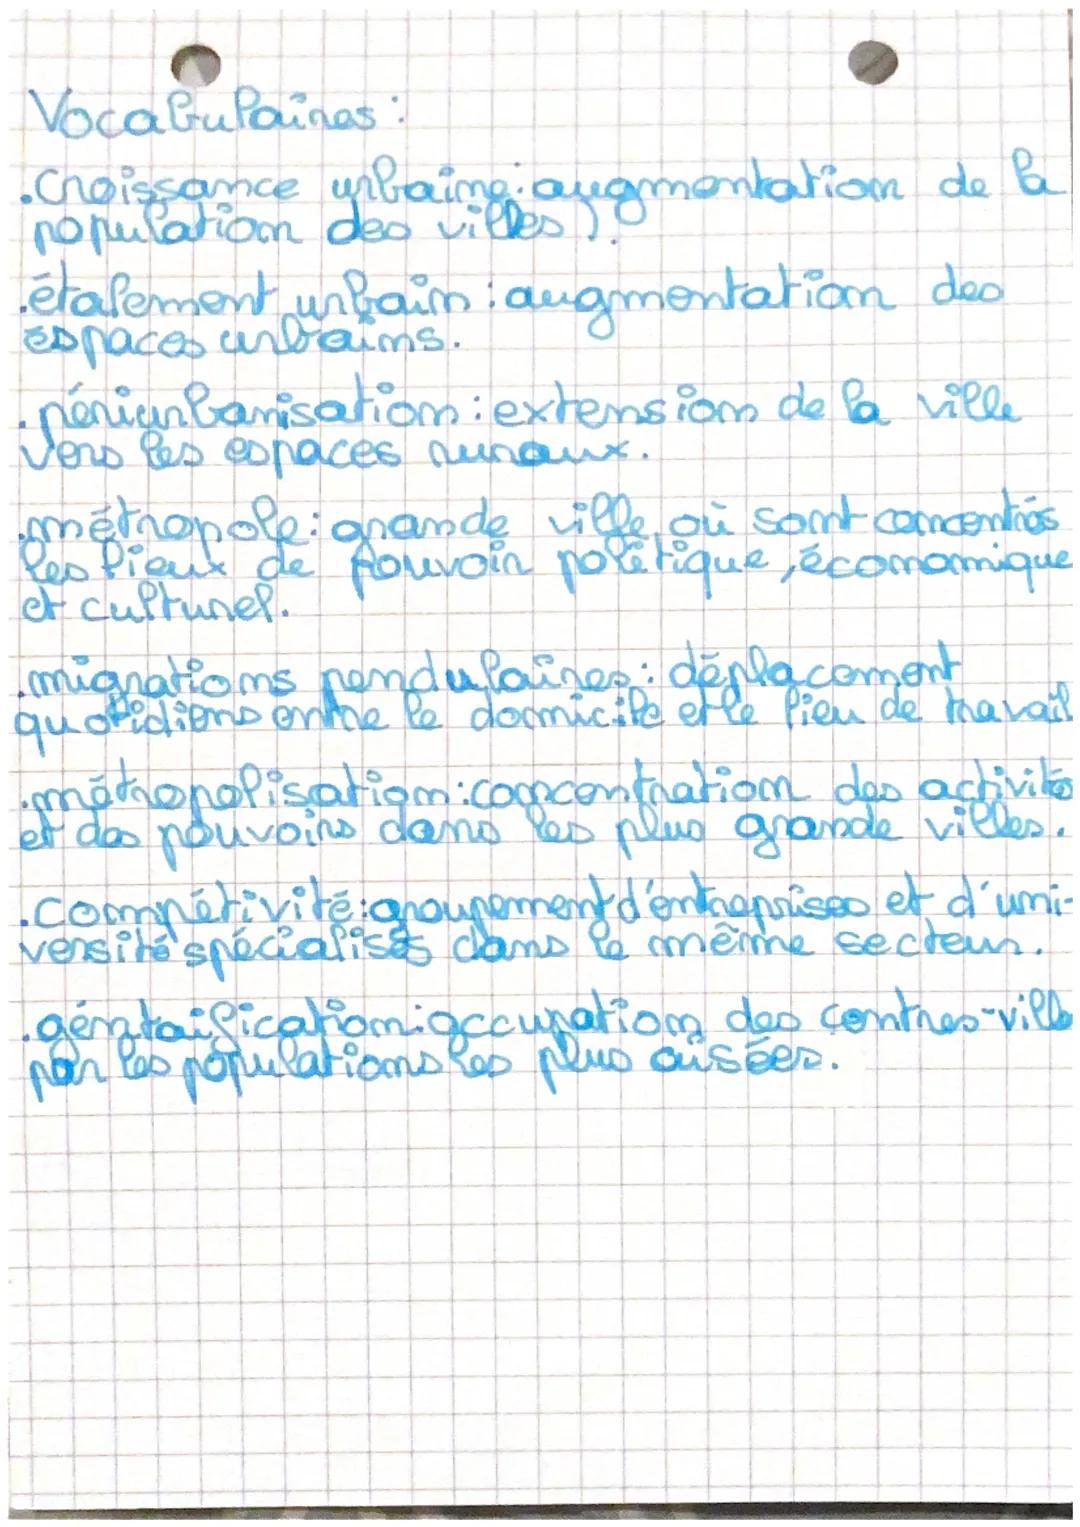 Vocabulaires :
.Croissance urbaine: augmentation de la
population des villes ).
.étalement urbain : augmentation des
espaces urbains.
.périurbanisation : extension de la ville
vers les espaces ruraux.
.métropole : grande ville où sont concentrés
les lieux de pouvoir politique, économique
et culturel.
.migrations pendulaires : déplacement
quotidiens entre le domicile et le lieu de travail
.métropolisation : concentration des activités
et des pouvoirs dans les plus grande villes.
.compétivité: groupement d'entreprises et d'uni-
versité spécialisés dans le même secteur.
.géntrification: occupation des centres-ville
par les populations les plus aisées.